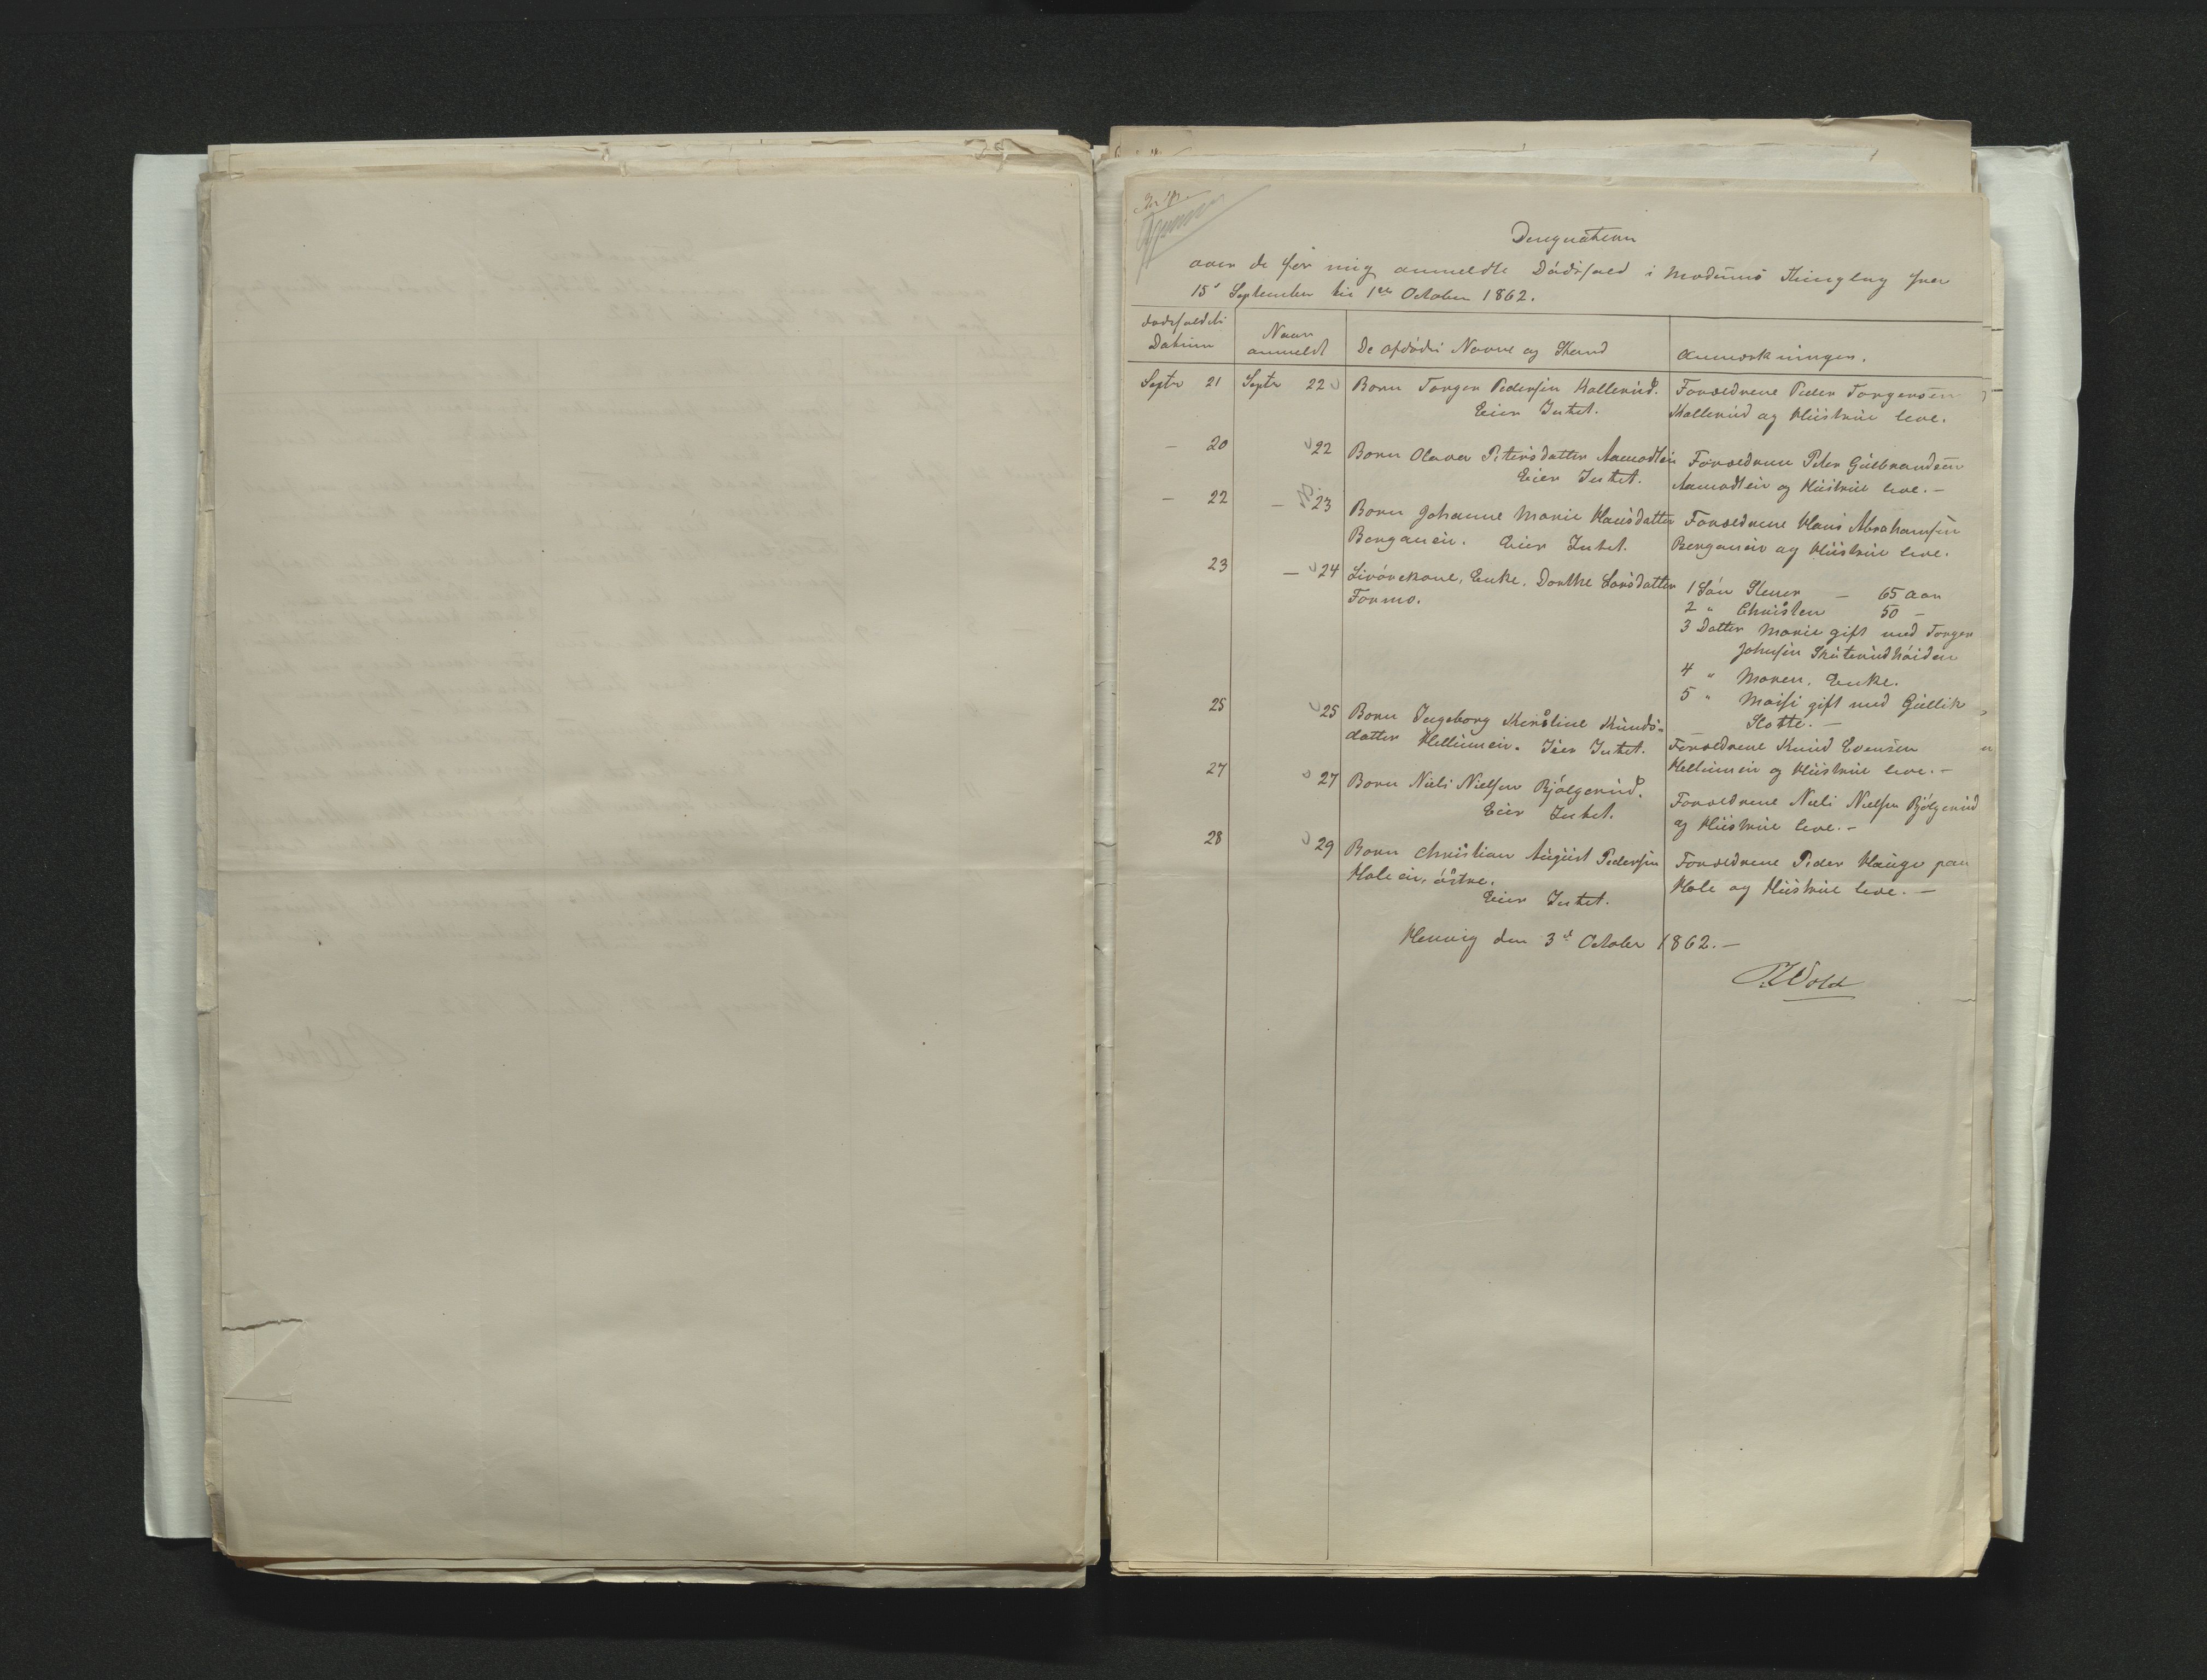 Designation
over de for mig anmeldte Dödsfald i Modums Thinglag fra
15de September til 1ste October 1862.
Dødsfaldets
Datum
Naar
anmeldt
De afdødes Navne og Stand
Anmærkninger.
Septr 21 Septr 22 Barn Torger Pedersen Kallerud. Forældrene Peder Torgersen
Eier Intet. Kallerud og Hustrue leve.
— 20 22 Barn Olava Petersdatter Aamodteie Forældrene Peter Gulbrandsen
Eier Intet. Aamodteie og Hustrue leve. —
— 22 — 23 Barn Johanne Marie Hansdatter Forældrene Hans Abrahamsen
Bergan eie. Eier Intet. Bergan eie og Hustrue leve.
23 — 24 Livörekone, Enke, Dorthe Larsdatter
Formo.
1 Sön Stener — 65 Aar
2 " Christen 50 —
3 Datter Marie gift med Torger
Johnsen Skuterudhöiden
4 " Maren, Enke.
5 " Maisi gift med Gullik
Slotte. —
25 25 Barn Ingeborg Kirstine Knuds-
datter Hellum eie. Eier Intet.
Forældrene Knud Evensen
Hellum eie og Hustrue leve. —
27 27 Barn Niels Nielsen Bjölgerud.
Eier Intet.
Forældrene Niels Nielsen Bjölgerud
og Hustrue leve. —
28 29 Barn Christian August Pedersen
Hole eie, östre.
Eier Intet.
Forældrene Peder Hauge paa
Hole og Hustrue leve. —
den 3de October 1862. —
Wold